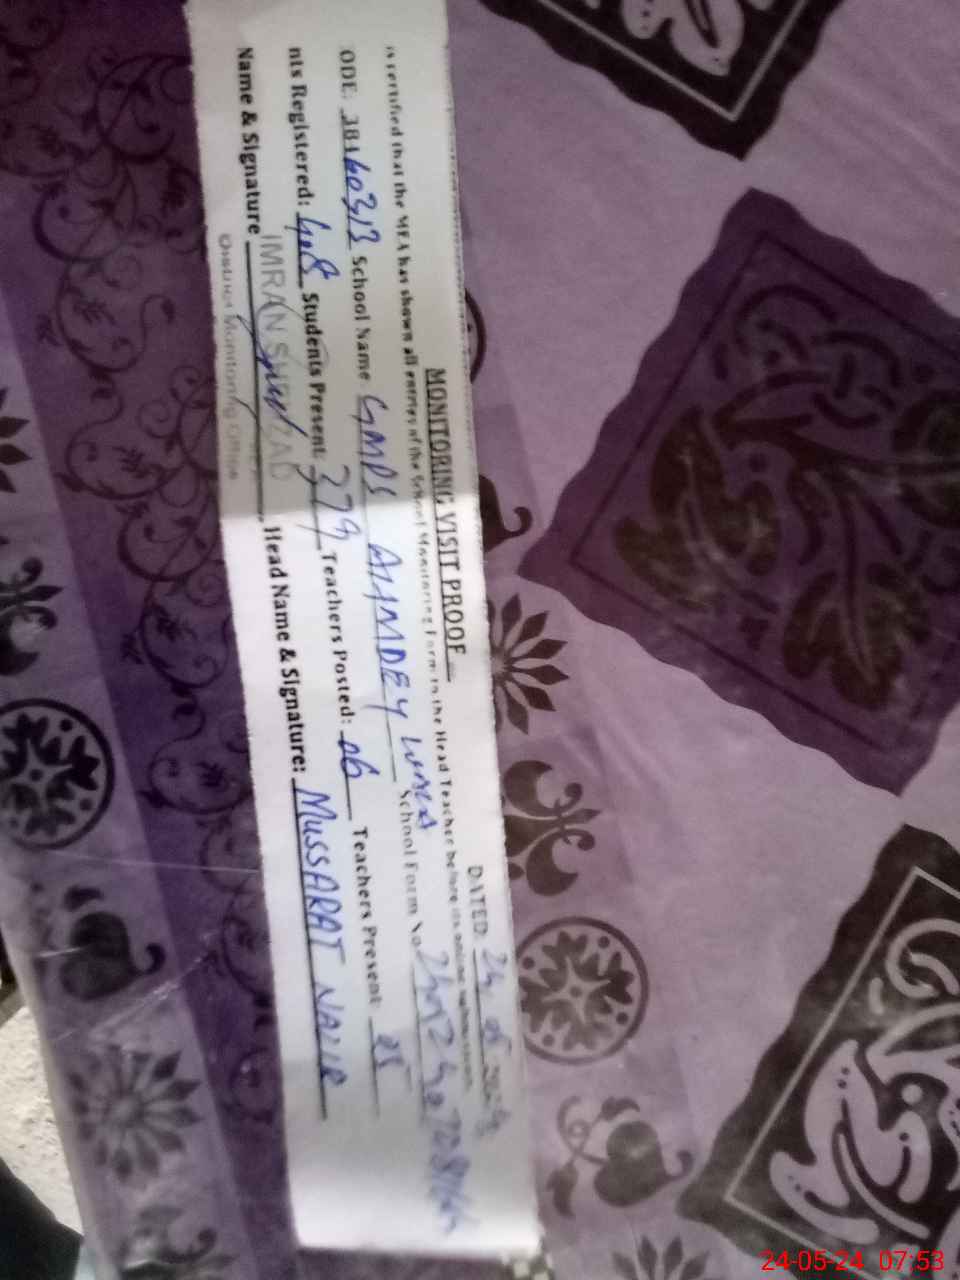 MONITORING VISIT PROOF
DATED: 24 05 2024
is certified that the MEA has shown all entries of the School Monitoring Form to the Head Teacher before its online submission.
ODE: 38460313 School Name GMPS ALAMDEY School Form No
nts Registered: 408 Students Present: 379 Teachers Posted: 06 Teachers Present: 05
Name & Signature IMRAN SHAHZAD Head Name & Signature: MUSSARAT NAZIR
District Monitoring Office
24-05-24 07:53